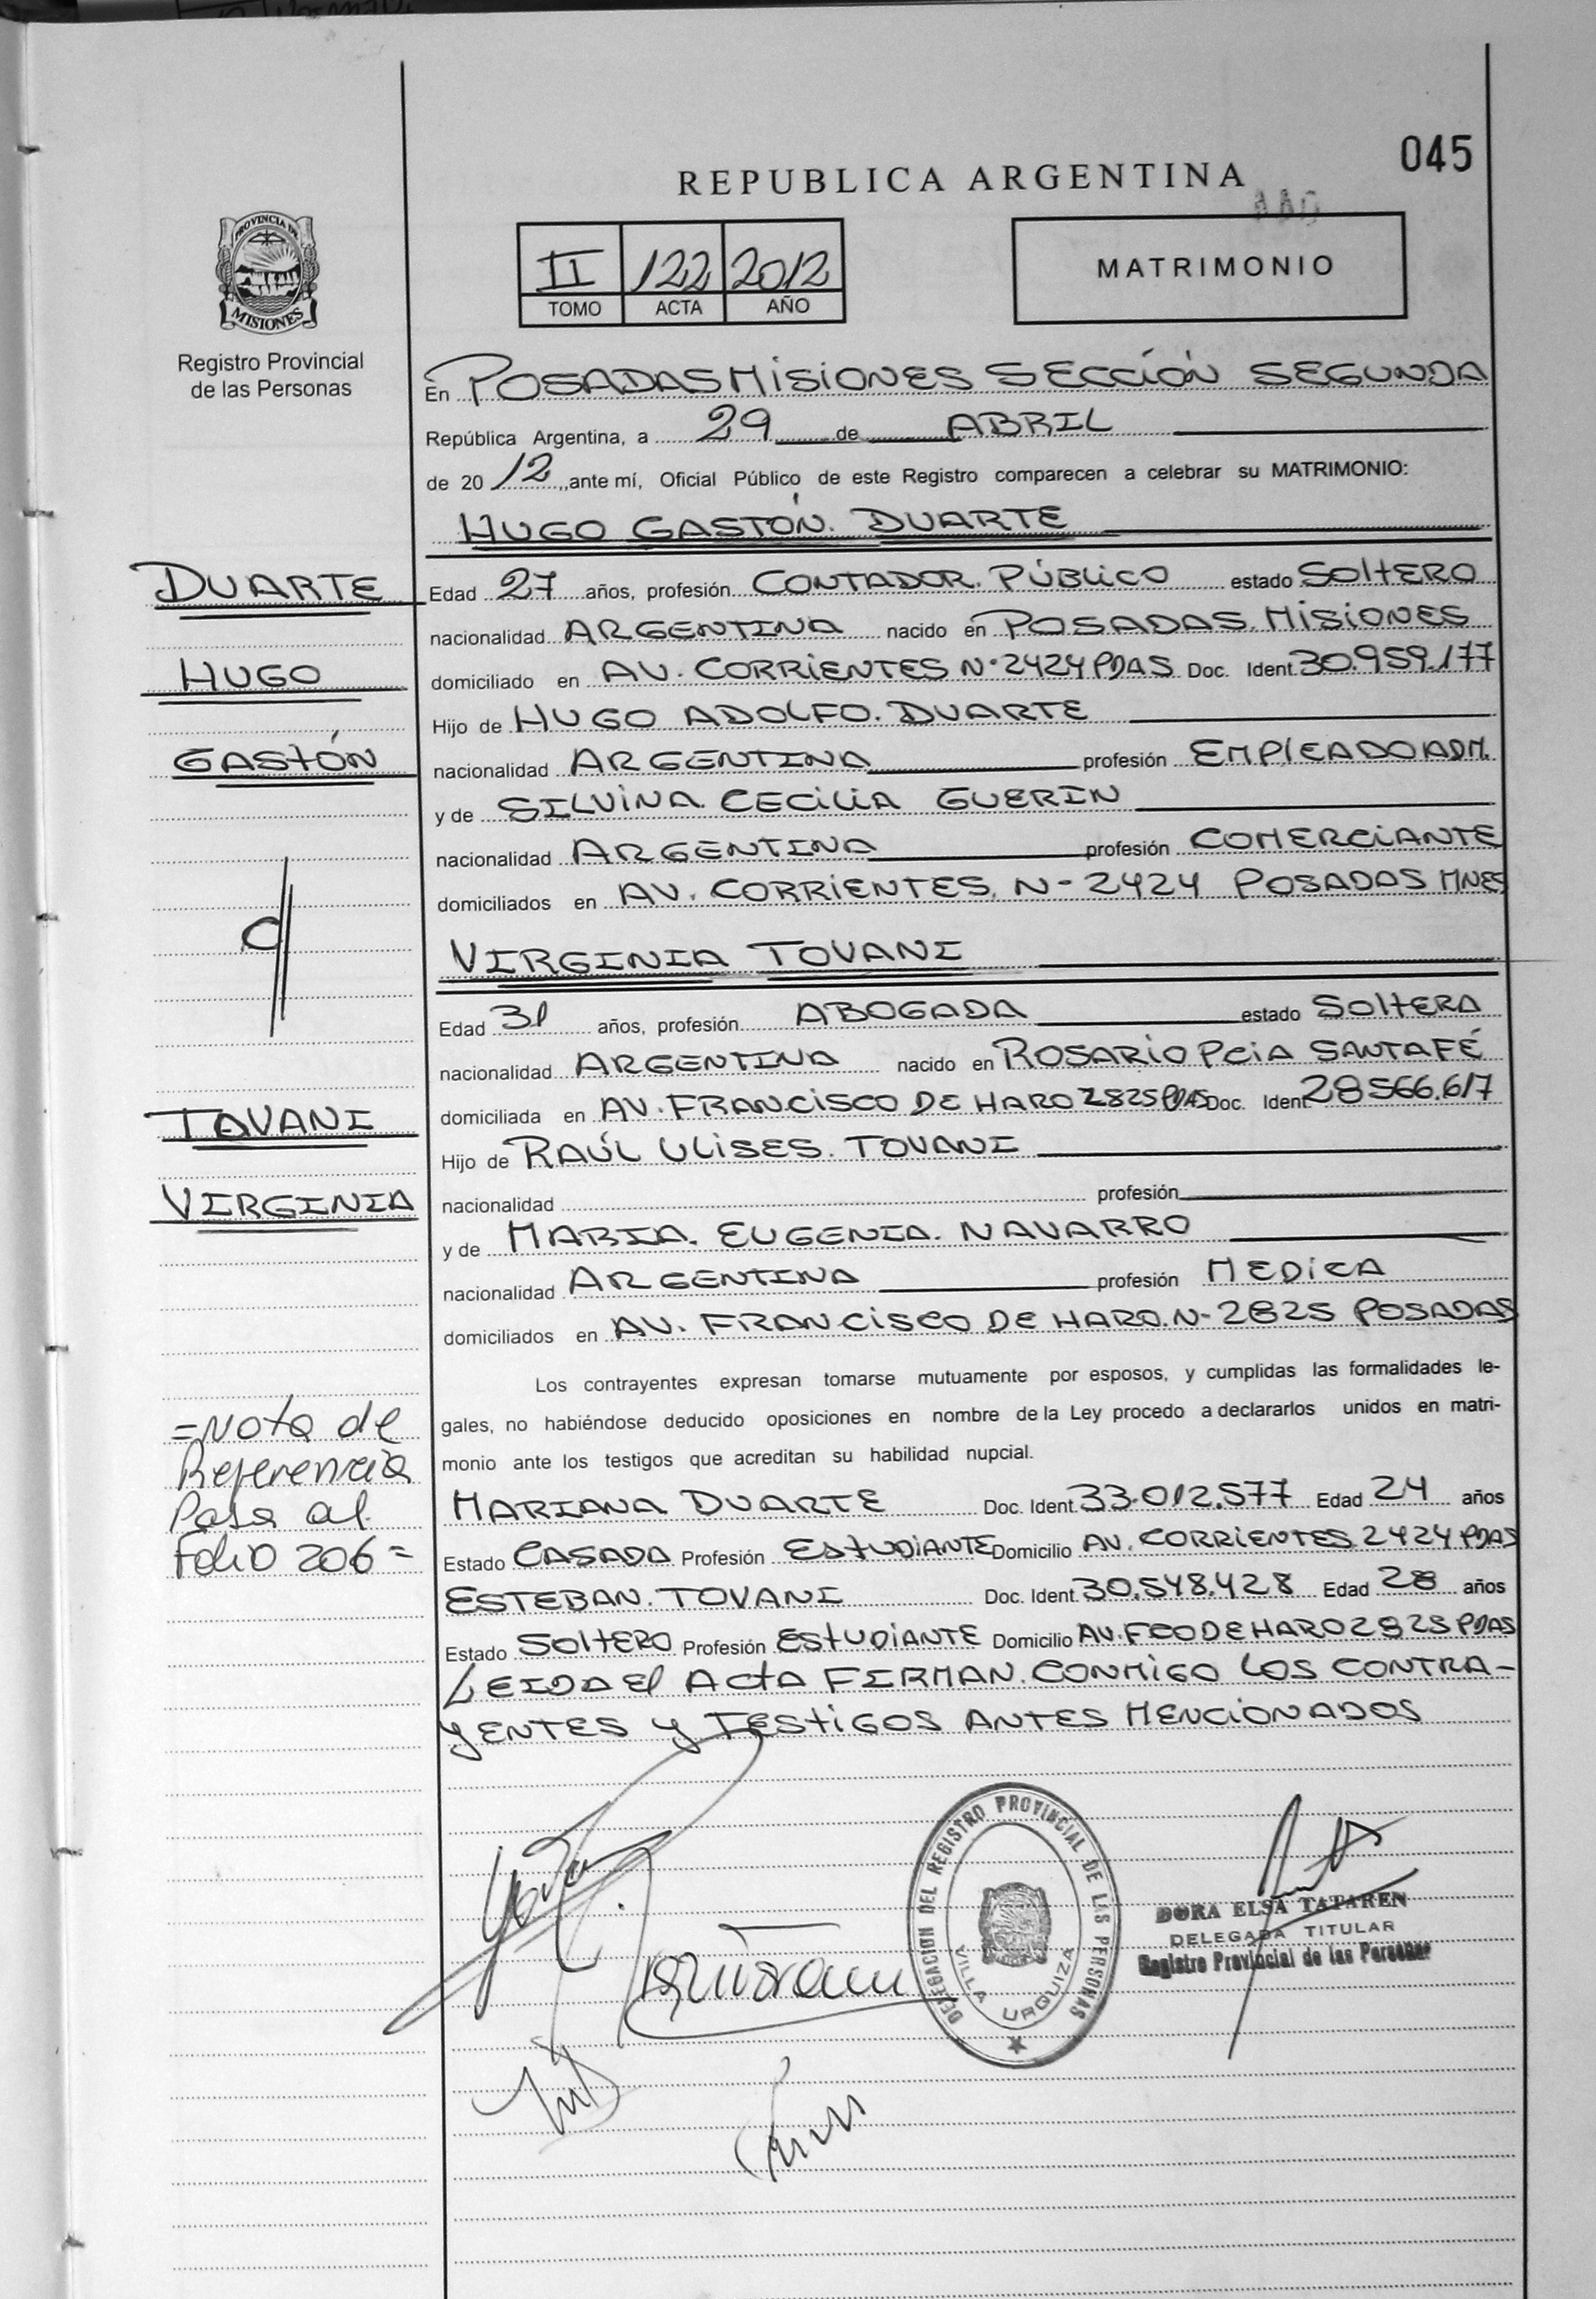 045
REPUBLICA ARGENTINA
PROVINCIA DE
MISIONES
Registro Provincial
de las Personas
II 122 2012
TOMO ACTA AÑO
MATRIMONIO
En POSADAS MISIONES SECCIÓN SEGUNDA
República Argentina, a 29 de ABRIL
de 20 12 ,,ante mí, Oficial Público de este Registro comparecen a celebrar su MATRIMONIO:
HUGO GASTÓN. DUARTE
DUARTE
HUGO
GASTÓN
Edad 27 años, profesión CONTADOR. PÚBLICO estado SOLTERO
nacionalidad ARGENTINA nacido en POSADAS. MISIONES
domiciliado en AV. CORRIENTES Nº 2424 PDAS Doc. Ident. 30.959.177
Hijo de HUGO ADOLFO. DUARTE
nacionalidad ARGENTINA profesión EMPLEADO ADM.
y de SILVINA. CECILIA GUERIN
nacionalidad ARGENTINA profesión COMERCIANTE
domiciliados en AV. CORRIENTES. Nº 2424 POSADAS MNES
c//
VIRGINIA TOVANI
Edad 31 años, profesión ABOGADA estado SOLTERA
nacionalidad ARGENTINA nacido en ROSARIO PCIA SANTA FÉ
domiciliada en AV. FRANCISCO DE HARO 2825 PDAS Doc. Ident. 28566.617
TOVANI
VIRGINIA
Hijo de RAÚL ULISES. TOVANI
nacionalidad profesión
y de MARIA. EUGENIA. NAVARRO
nacionalidad ARGENTINA profesión MEDICA
domiciliados en AV. FRANCISCO DE HARO. Nº 2825 POSADAS
Los contrayentes expresan tomarse mutuamente por esposos, y cumplidas las formalidades le-
gales, no habiéndose deducido oposiciones en nombre de la Ley procedo a declararlos unidos en matri-
monio ante los testigos que acreditan su habilidad nupcial.
=Nota de
Referencia
Pasa al
Folio 206=
MARIANA DUARTE Doc. Ident. 33.012.577 Edad 24 años
Estado CASADA Profesión ESTUDIANTE Domicilio AV. CORRIENTES 2424 PDAS
ESTEBAN. TOVANI Doc. Ident. 30.548.428 Edad 28 años
Estado SOLTERO Profesión ESTUDIANTE Domicilio AV. FCO DE HARO 2825 PDAS
LEIDA El ACTA FIRMAN. CONMIGO LOS CONTRA-
YENTES Y TESTIGOS ANTES MENCIONADOS
DELEGACION DEL REGISTRO PROVINCIAL DE LAS PERSONAS
VILLA URQUIZA
DORA ELSA TATAREN
DELEGADA TITULAR
Registro Provincial de las Personas